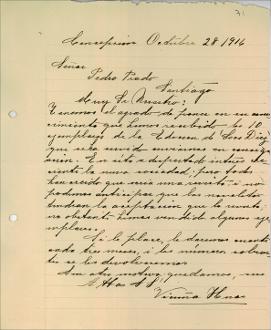 71
Concepcion Octubre 28 1916
Señor
Pedro Prado
Santiago
Muy Sr. Nuestro:
Tenemos el agrado de poner en su cono
cimiento que hemos recibido los 10
ejemplares de la Edicion de Los Diez
que se ha servido enviarnos en consign
acion. En esta a despertado interés
la nueva sociedad; pero todos
han creido que era una revista i no
podemos anticipar que los
tendran la aceptacion que la revista,
no obstante hemos vendido algunos eje
mplares.
Si le place, le daremos cuenta
cada tres meses, i los números sobran
tes se los devolveremos
Sin otro motivo quedamos, sus
A. Attos S. S.
Vicuña Hnos